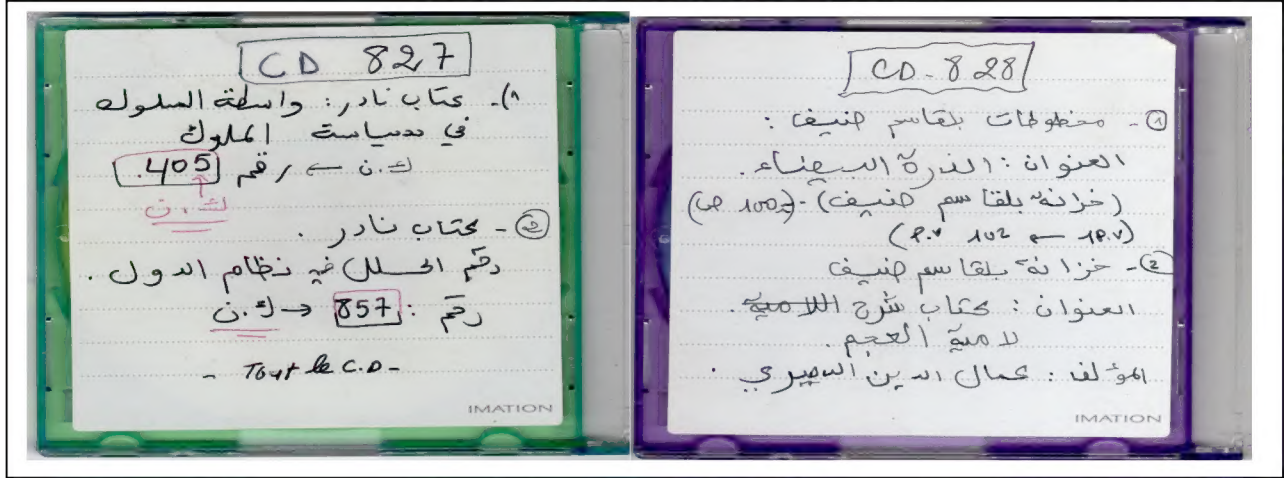 CD 827
1)- كتاب نادر: واسطة السلوك
في سياسة الملوك
ك.ن ← رقم 405.
ك.ن
2 - كتاب نادر.
رقم الحلل في نظام الدول.
رقم: 857 → ك.ن
- Tout le C.D -
IMATION
CD-828
1 - مخطوطات بلقاسم ضيف:
العنوان: الدرة البيضاء.
(خزانة بلقاسم ضيف) - (100 ص)
102 ←
2 - خزانة بلقاسم ضيف
العنوان: كتاب شرح اللامية.
لامية العجم.
المؤلف: كمال الدين الدميري.
IMATION